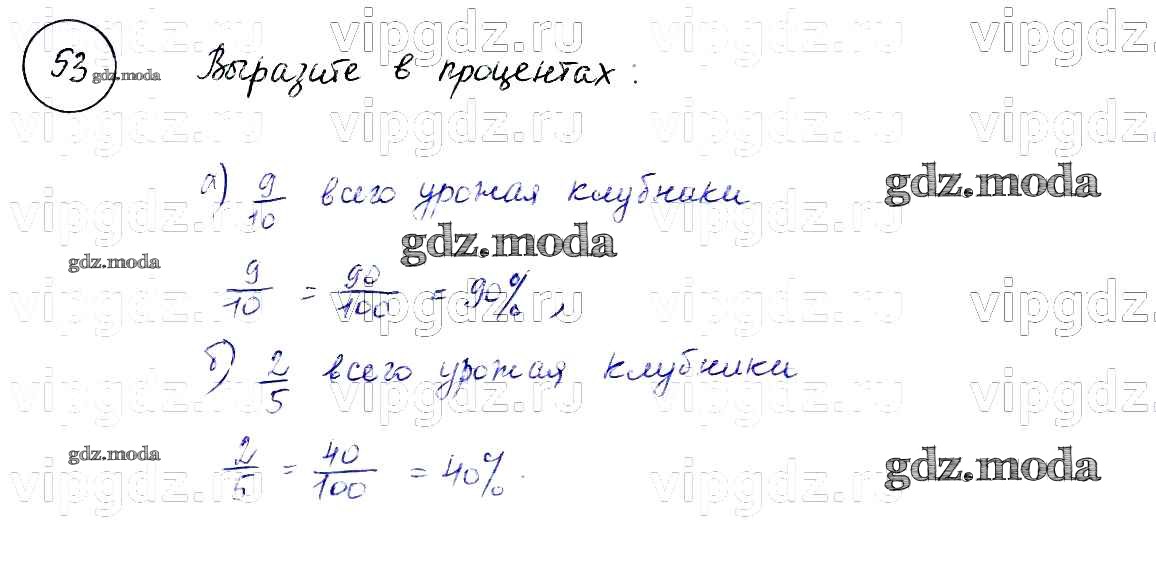 vipgdz.ru vipgdz.ru vipgdz.ru vipgdz.ru
53 gdz.moda Выразите в процентах:
vipgdz.ru vipgdz.ru vipgdz.ru vipgdz.ru
а) 9/10 всего урожая клубники gdz.moda
vipgdz.ru vipgdz.ru vipgdz.ru vipgdz.ru
gdz.moda gdz.moda
9/10 = 90/100 = 90%,
vipgdz.ru vipgdz.ru vipgdz.ru vipgdz.ru
б) 2/5 всего урожая клубники
vipgdz.ru vipgdz.ru vipgdz.ru vipgdz.ru
gdz.moda gdz.moda
2/5 = 40/100 = 40%.
vipgdz.ru vipgdz.ru vipgdz.ru vipgdz.ru